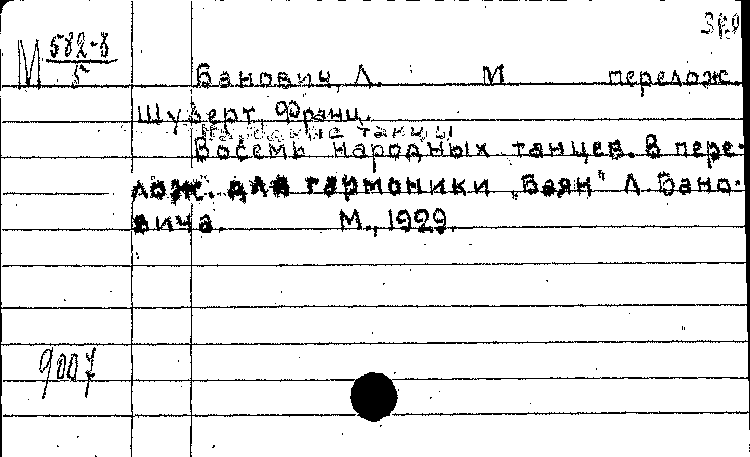 М 582-8/5
Банович, Л. М перелож.
Шуберт, Франц.
Народные танцы
Восемь народных танцев. В пере-
лож. для гармоники „Баян" Л. Бано-
вича. М., 1929.
9007